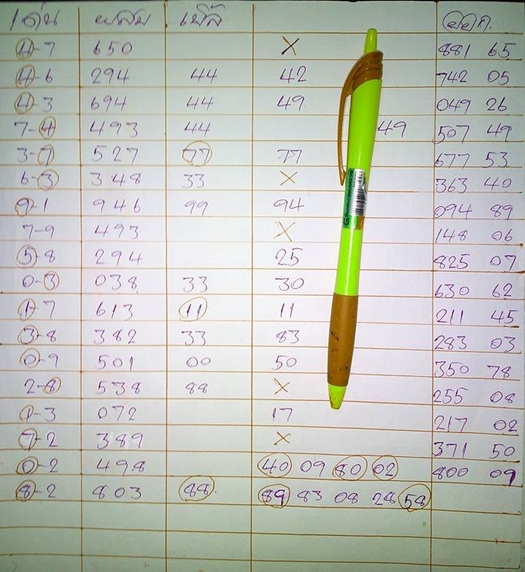 เด่น ผสม เบิ้ล ออก.
4-7 650 × 881 65
4-6 294 44 42 742 05
4-3 694 44 49 049 26
7-4 493 44 49 507 49
3-7 527 77 77 677 53
6-3 348 33 × 363 40
9-1 946 99 94 094 89
7-9 493 × 148 06
5-8 294 25 825 07
0-3 038 33 30 630 62
1-7 613 11 11 211 45
3-8 382 33 83 283 03
0-9 501 00 50 350 78
2-8 538 88 × 255 08
1-3 072 17 217 02
7-2 389 × 371 50
0-2 498 40 09 80 02 800 09
8-2 803 88 89 83 08 28 58